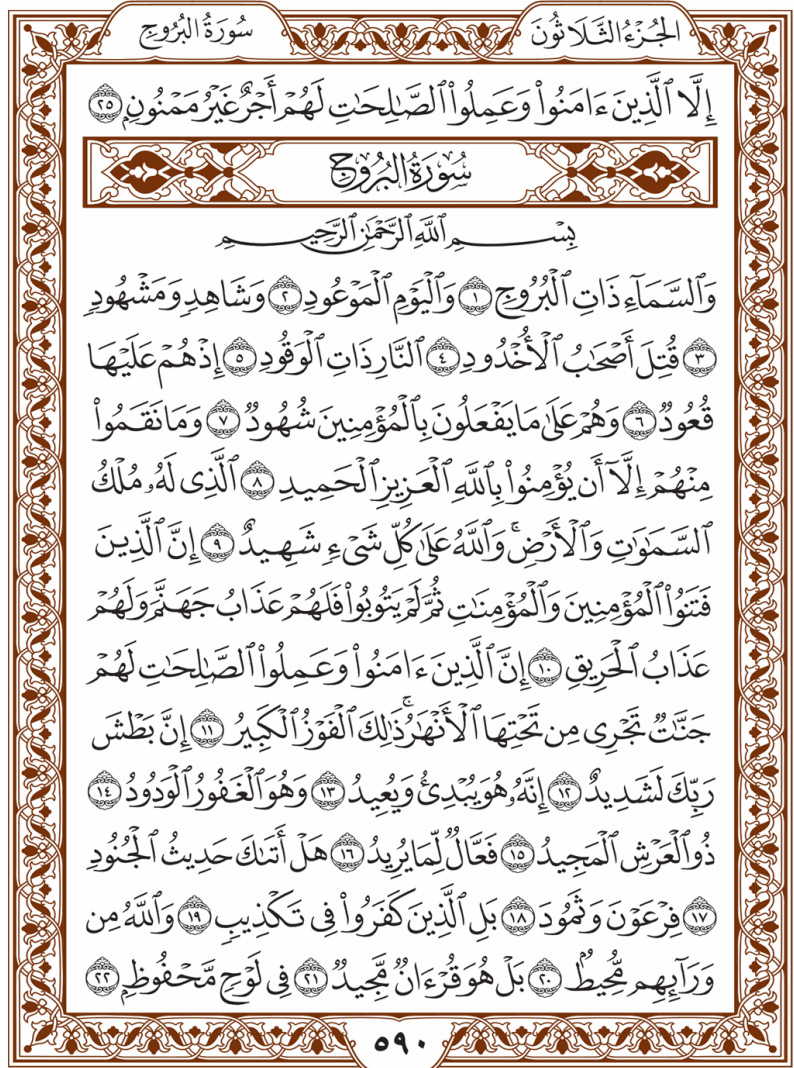 الجُزْءُ الثَّلَاثُونَ
سُورَةُ البُرُوجِ
إِلَّا ٱلَّذِينَ ءَامَنُوا۟ وَعَمِلُوا۟ ٱلصَّـٰلِحَـٰتِ لَهُمْ أَجْرٌ غَيْرُ مَمْنُونٍۭ ٢٥
سُورَةُ البُرُوجِ
بِسْمِ ٱللَّهِ ٱلرَّحْمَـٰنِ ٱلرَّحِيمِ
وَٱلسَّمَآءِ ذَاتِ ٱلْبُرُوجِ ١ وَٱلْيَوْمِ ٱلْمَوْعُودِ ٢ وَشَاهِدٍ وَمَشْهُودٍ
٣ قُتِلَ أَصْحَـٰبُ ٱلْأُخْدُودِ ٤ ٱلنَّارِ ذَاتِ ٱلْوَقُودِ ٥ إِذْ هُمْ عَلَيْهَا
قُعُودٌ ٦ وَهُمْ عَلَىٰ مَا يَفْعَلُونَ بِٱلْمُؤْمِنِينَ شُهُودٌ ٧ وَمَا نَقَمُوا۟
مِنْهُمْ إِلَّآ أَن يُؤْمِنُوا۟ بِٱللَّهِ ٱلْعَزِيزِ ٱلْحَمِيدِ ٨ ٱلَّذِى لَهُۥ مُلْكُ
ٱلسَّمَـٰوَٰتِ وَٱلْأَرْضِ ۚ وَٱللَّهُ عَلَىٰ كُلِّ شَىْءٍ شَهِيدٌ ٩ إِنَّ ٱلَّذِينَ
فَتَنُوا۟ ٱلْمُؤْمِنِينَ وَٱلْمُؤْمِنَـٰتِ ثُمَّ لَمْ يَتُوبُوا۟ فَلَهُمْ عَذَابُ جَهَنَّمَ وَلَهُمْ
عَذَابُ ٱلْحَرِيقِ ١٠ إِنَّ ٱلَّذِينَ ءَامَنُوا۟ وَعَمِلُوا۟ ٱلصَّـٰلِحَـٰتِ لَهُمْ
جَنَّـٰتٌ تَجْرِى مِن تَحْتِهَا ٱلْأَنْهَـٰرُ ۚ ذَٰلِكَ ٱلْفَوْزُ ٱلْكَبِيرُ ١١ إِنَّ بَطْشَ
رَبِّكَ لَشَدِيدٌ ١٢ إِنَّهُۥ هُوَ يُبْدِئُ وَيُعِيدُ ١٣ وَهُوَ ٱلْغَفُورُ ٱلْوَدُودُ ١٤
ذُو ٱلْعَرْشِ ٱلْمَجِيدُ ١٥ فَعَّالٌ لِّمَا يُرِيدُ ١٦ هَلْ أَتَىٰكَ حَدِيثُ ٱلْجُنُودِ
١٧ فِرْعَوْنَ وَثَمُودَ ١٨ بَلِ ٱلَّذِينَ كَفَرُوا۟ فِى تَكْذِيبٍ ١٩ وَٱللَّهُ مِن
وَرَآئِهِم مُّحِيطٌۢ ٢٠ بَلْ هُوَ قُرْءَانٌ مَّجِيدٌ ٢١ فِى لَوْحٍ مَّحْفُوظٍۭ ٢٢
٥٩٠